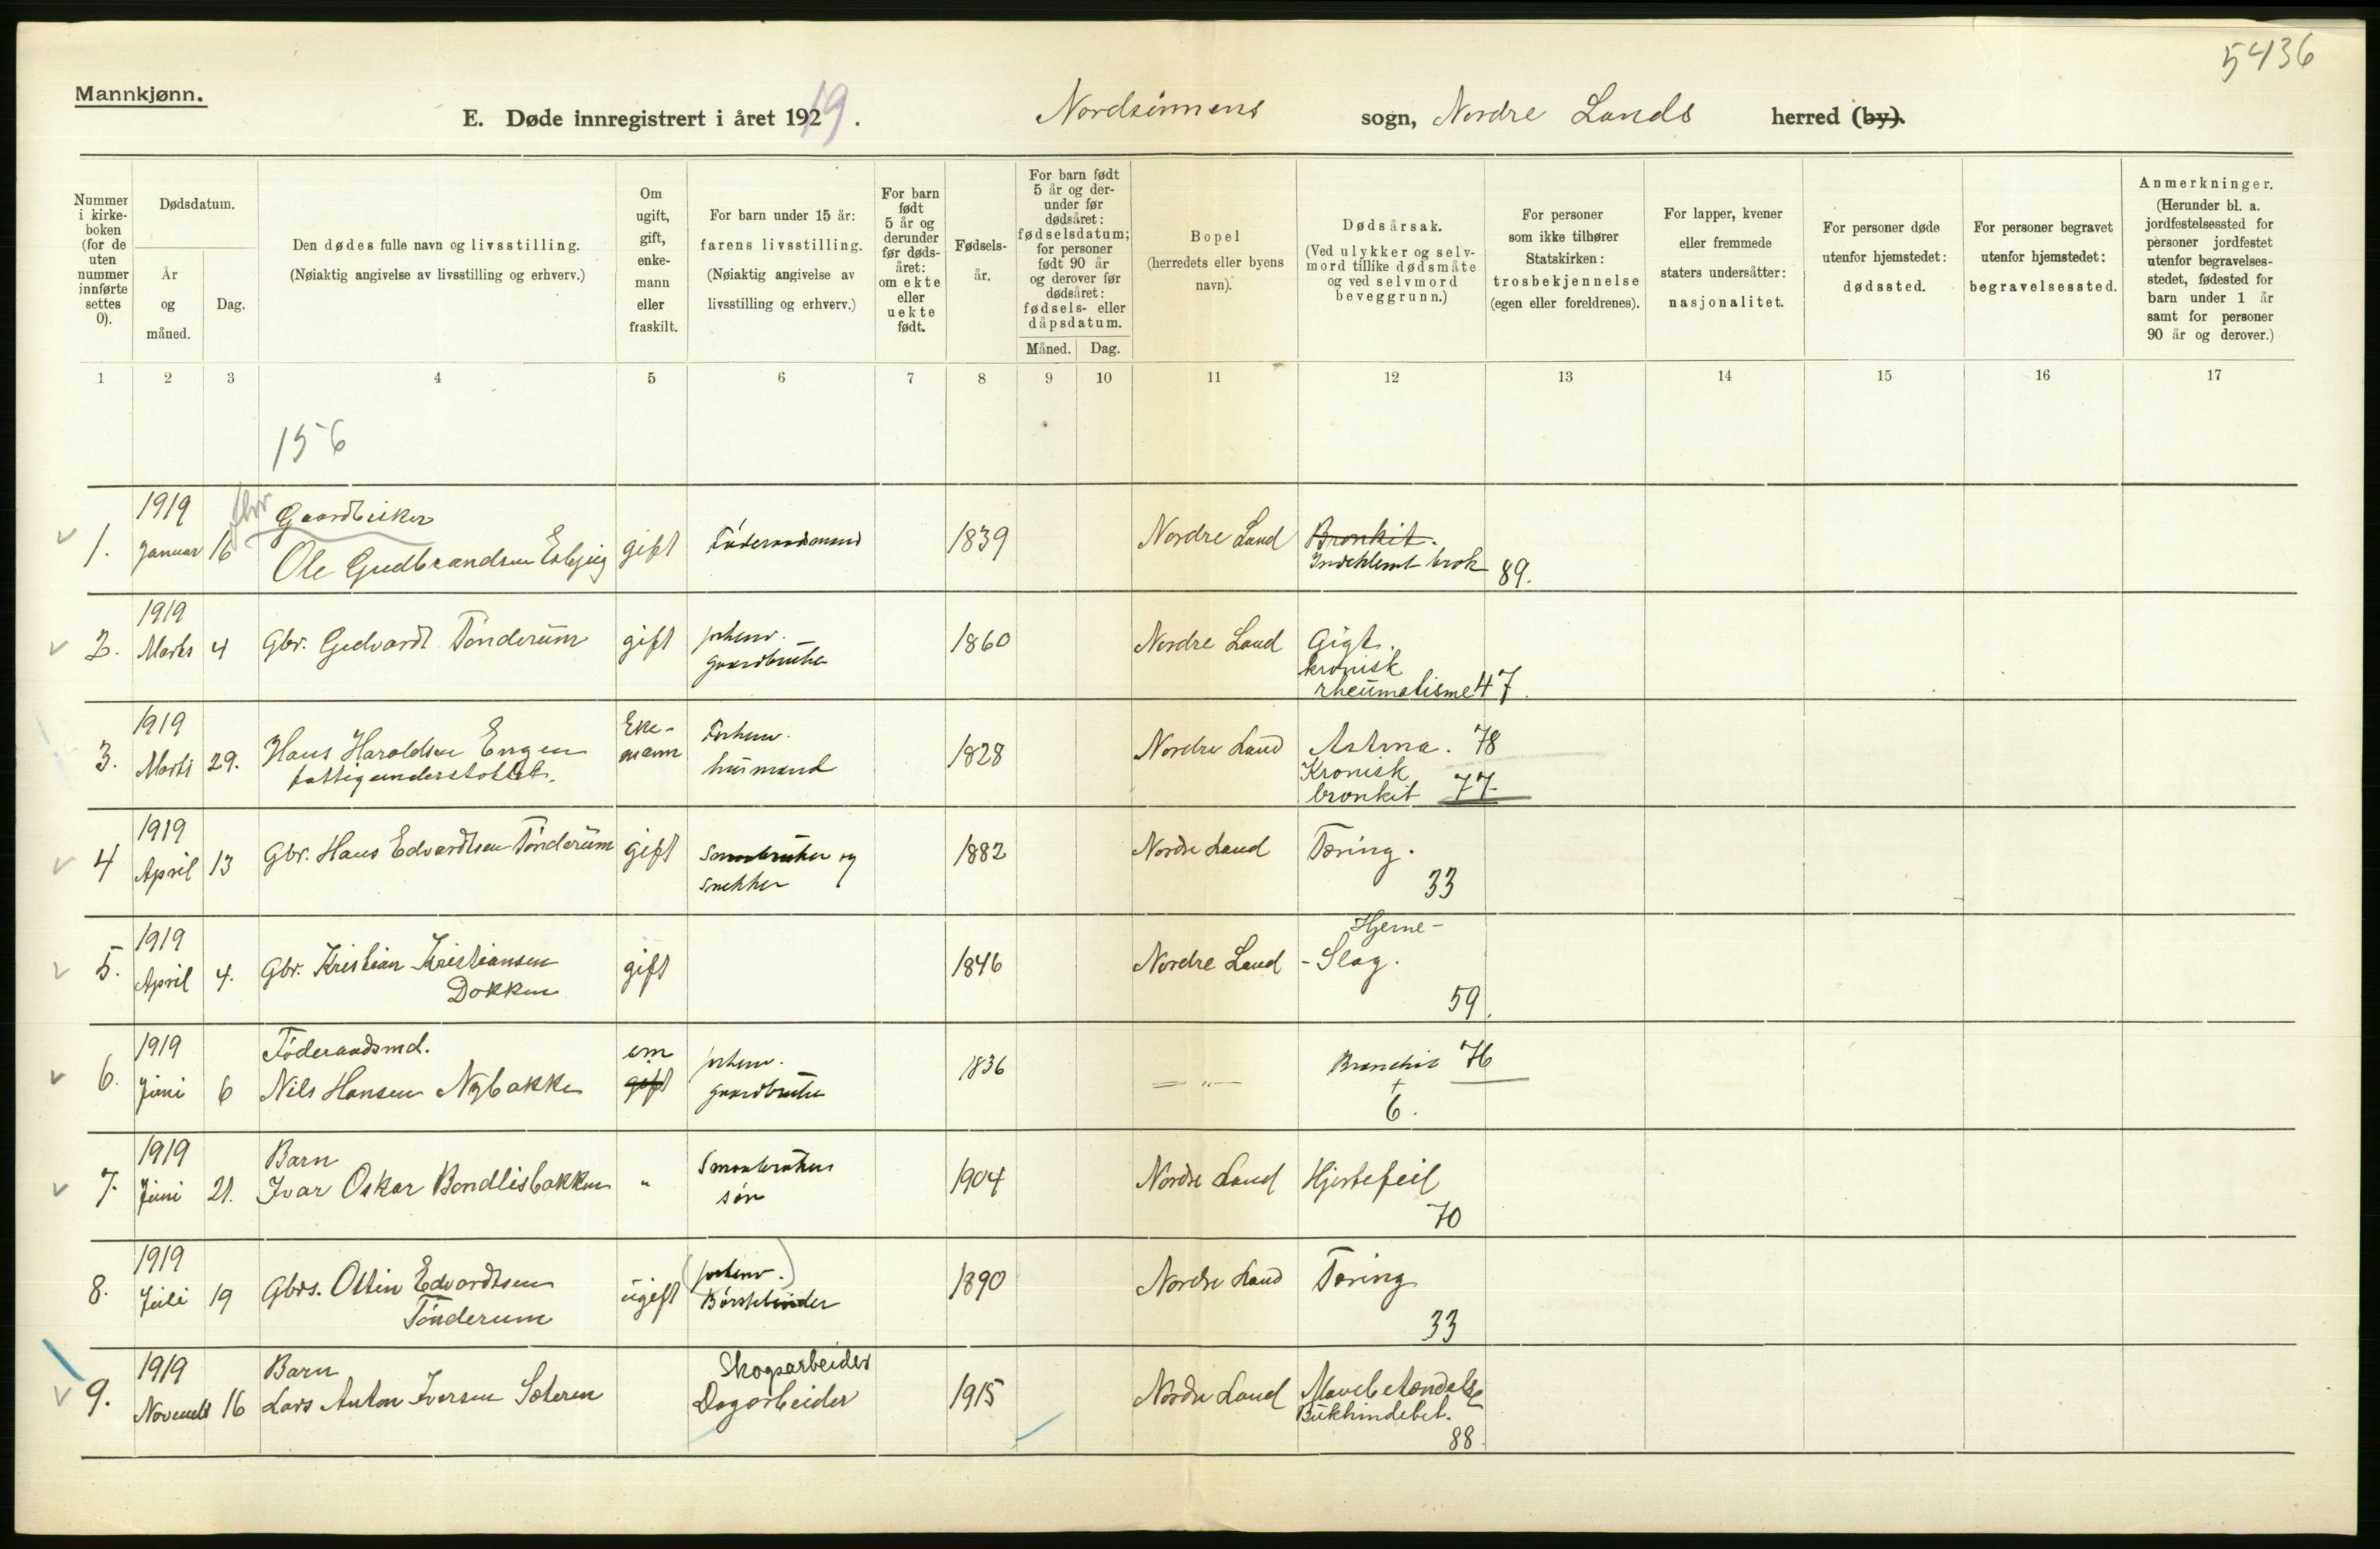 5436
Mannkjønn.
E. Døde innregistrert i året 1929.
Nordsinnens sogn, Nordre Lands herred (by).
Nummer i kirke-boken (for de uten nummer innførte settes 0).
Dødsdatum.
År og måned.
Dag.
Den dødes fulle navn og livsstilling.
(Nøiaktig angivelse av livsstilling og erhverv.)
Om ugift, gift, enke-mann eller fraskilt.
For barn under 15 år: farens livsstilling.
(Nøiaktig angivelse av livsstilling og erhverv.)
For barn født 5 år og derunder før døds-året: om ekte eller uekte født.
Fødsels-år.
For barn født 5 år og der-under før dødsåret: fødselsdatum; for personer født 90 år og derover før dødsåret: fødsels- eller dåpsdatum.
Måned.
Dag.
Bopel
(herredets eller byens navn).
Dødsårsak.
(Ved ulykker og selv-mord tillike dødsmåte og ved selvmord beveggrunn.)
For personer som ikke tilhører Statskirken: trosbekjennelse (egen eller foreldrenes).
For lapper, kvener eller fremmede staters undersåtter: nasjonalitet.
For personer døde utenfor hjemstedet: dødssted.
For personer begravet utenfor hjemstedet: begravelsessted.
Anmerkninger.
(Herunder bl. a. jordfestelsessted for personer jordfestet utenfor begravelses-stedet, fødested for barn under 1 år samt for personer 90 år og derover.)
1 2 3 4 5 6 7 8 9 10 11 12 13 14 15 16 17
156
1919
Gaardbruker
1. Januar 16 Ole Gudbrandsen gift Föderaadsmand 1839 Nordre Land Bronkit.
Indeklemt brok 89.
1919
2. Marts 4 Gbr. Gedvardt Tönderüm gift forhenv. gaardbruker 1860 Nordre Land Gigt.
kronisk
rheumatisme 47.
1919
3. Marts 29. Hans Haroldsen Engen Enke-mann Forhenv. husmand 1828 Nordre Land Astma. 78
fattigunderstöttet.
Kronisk
bronkit 77
1919
4 April 13 Gbr. Hans Edvardtsen Tönderüm gift Smaabruker og snekker 1882 Nordre Land Tæring.
33
1919
5. April 4. Gbr. Kristian Kristiansen gift 1846 Nordre Land Hjerne-
Dokken
-Slag.
59.
1919
Föderaadsmd.
6. Juni 6 Nils Hansen Nybakke em gift forhenv. gaardbruker 1836 — " — Bronchit 76
+
6.
1919
Barn
7. Juni 21. Ivar Oskar Bondlisbakken " Smaabrukers sön 1904 Nordre Land Hjertefeil
70
1919
8. Juli 19 Gbrs. Ottin Edvardtsen ugift (forhenv.) Börstebinder 1890 Nordre Land Tæring
Tönderum
33
1919
Barn
Skogsarbeider
9. Novembr 16 Lars Anton Iversen Sæteren Dagarbeider 1915 Nordre Land Mavebetændelse
Bukhindebet.
88.